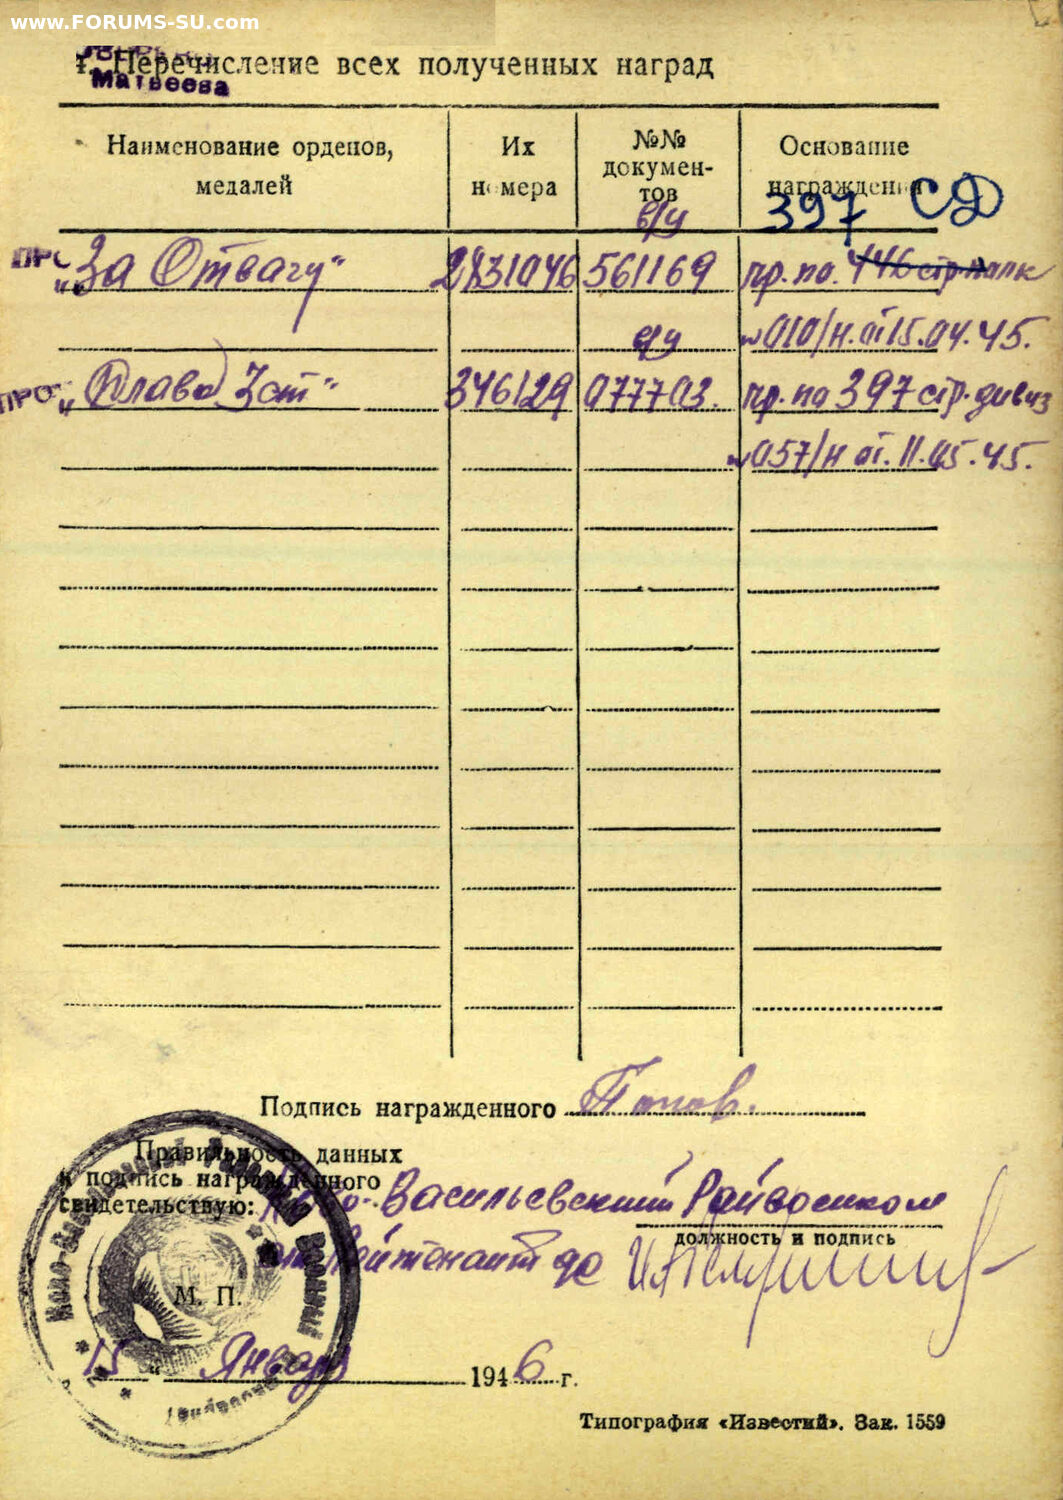 www.FORUMS-SU.com
Матвеева
Перечисление всех полученных наград
Наименование орденов, медалей
Их номера
№№ документов
Основание награждения
в/у
397 СД
„За Отвагу“ 2831046 561169 пр. по. 446 стр полк
№ 010/н. от 15.04.45.
„Слава 3 ст“ 346129 077703. пр. по 397 стр. дивиз
№ 057/н от. 11.05.45.
Подпись награжденного Попов.
Правильность данных
и подпись награжденного
свидетельствую: Ново-Васильевский Райвоенком
должность и подпись
лейтенант
М. П.
„15“ Января 1946 г.
Типография «Известий». Зак. 1559